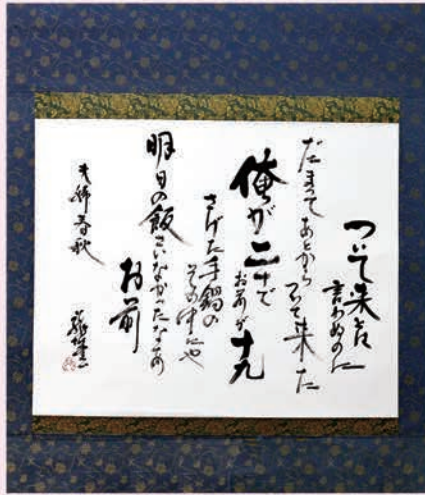 ついて来いとは
言わぬのに
だまってあとから ついて来た
俺が二十で
お前が十九
さげた手鍋の
その中にや
明日の飯さえなかったなあ
お前
夫婦春秋